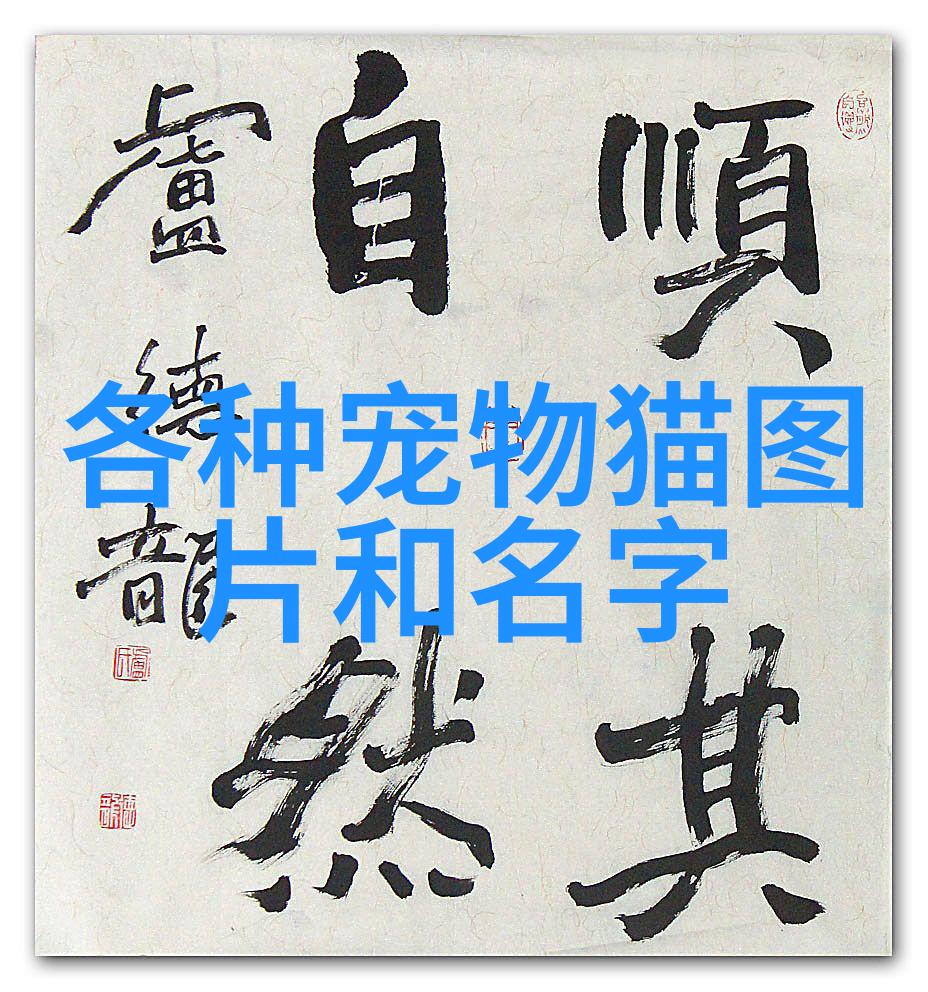 順其
自然
盧德龍
各种宠物猫图
片和名字